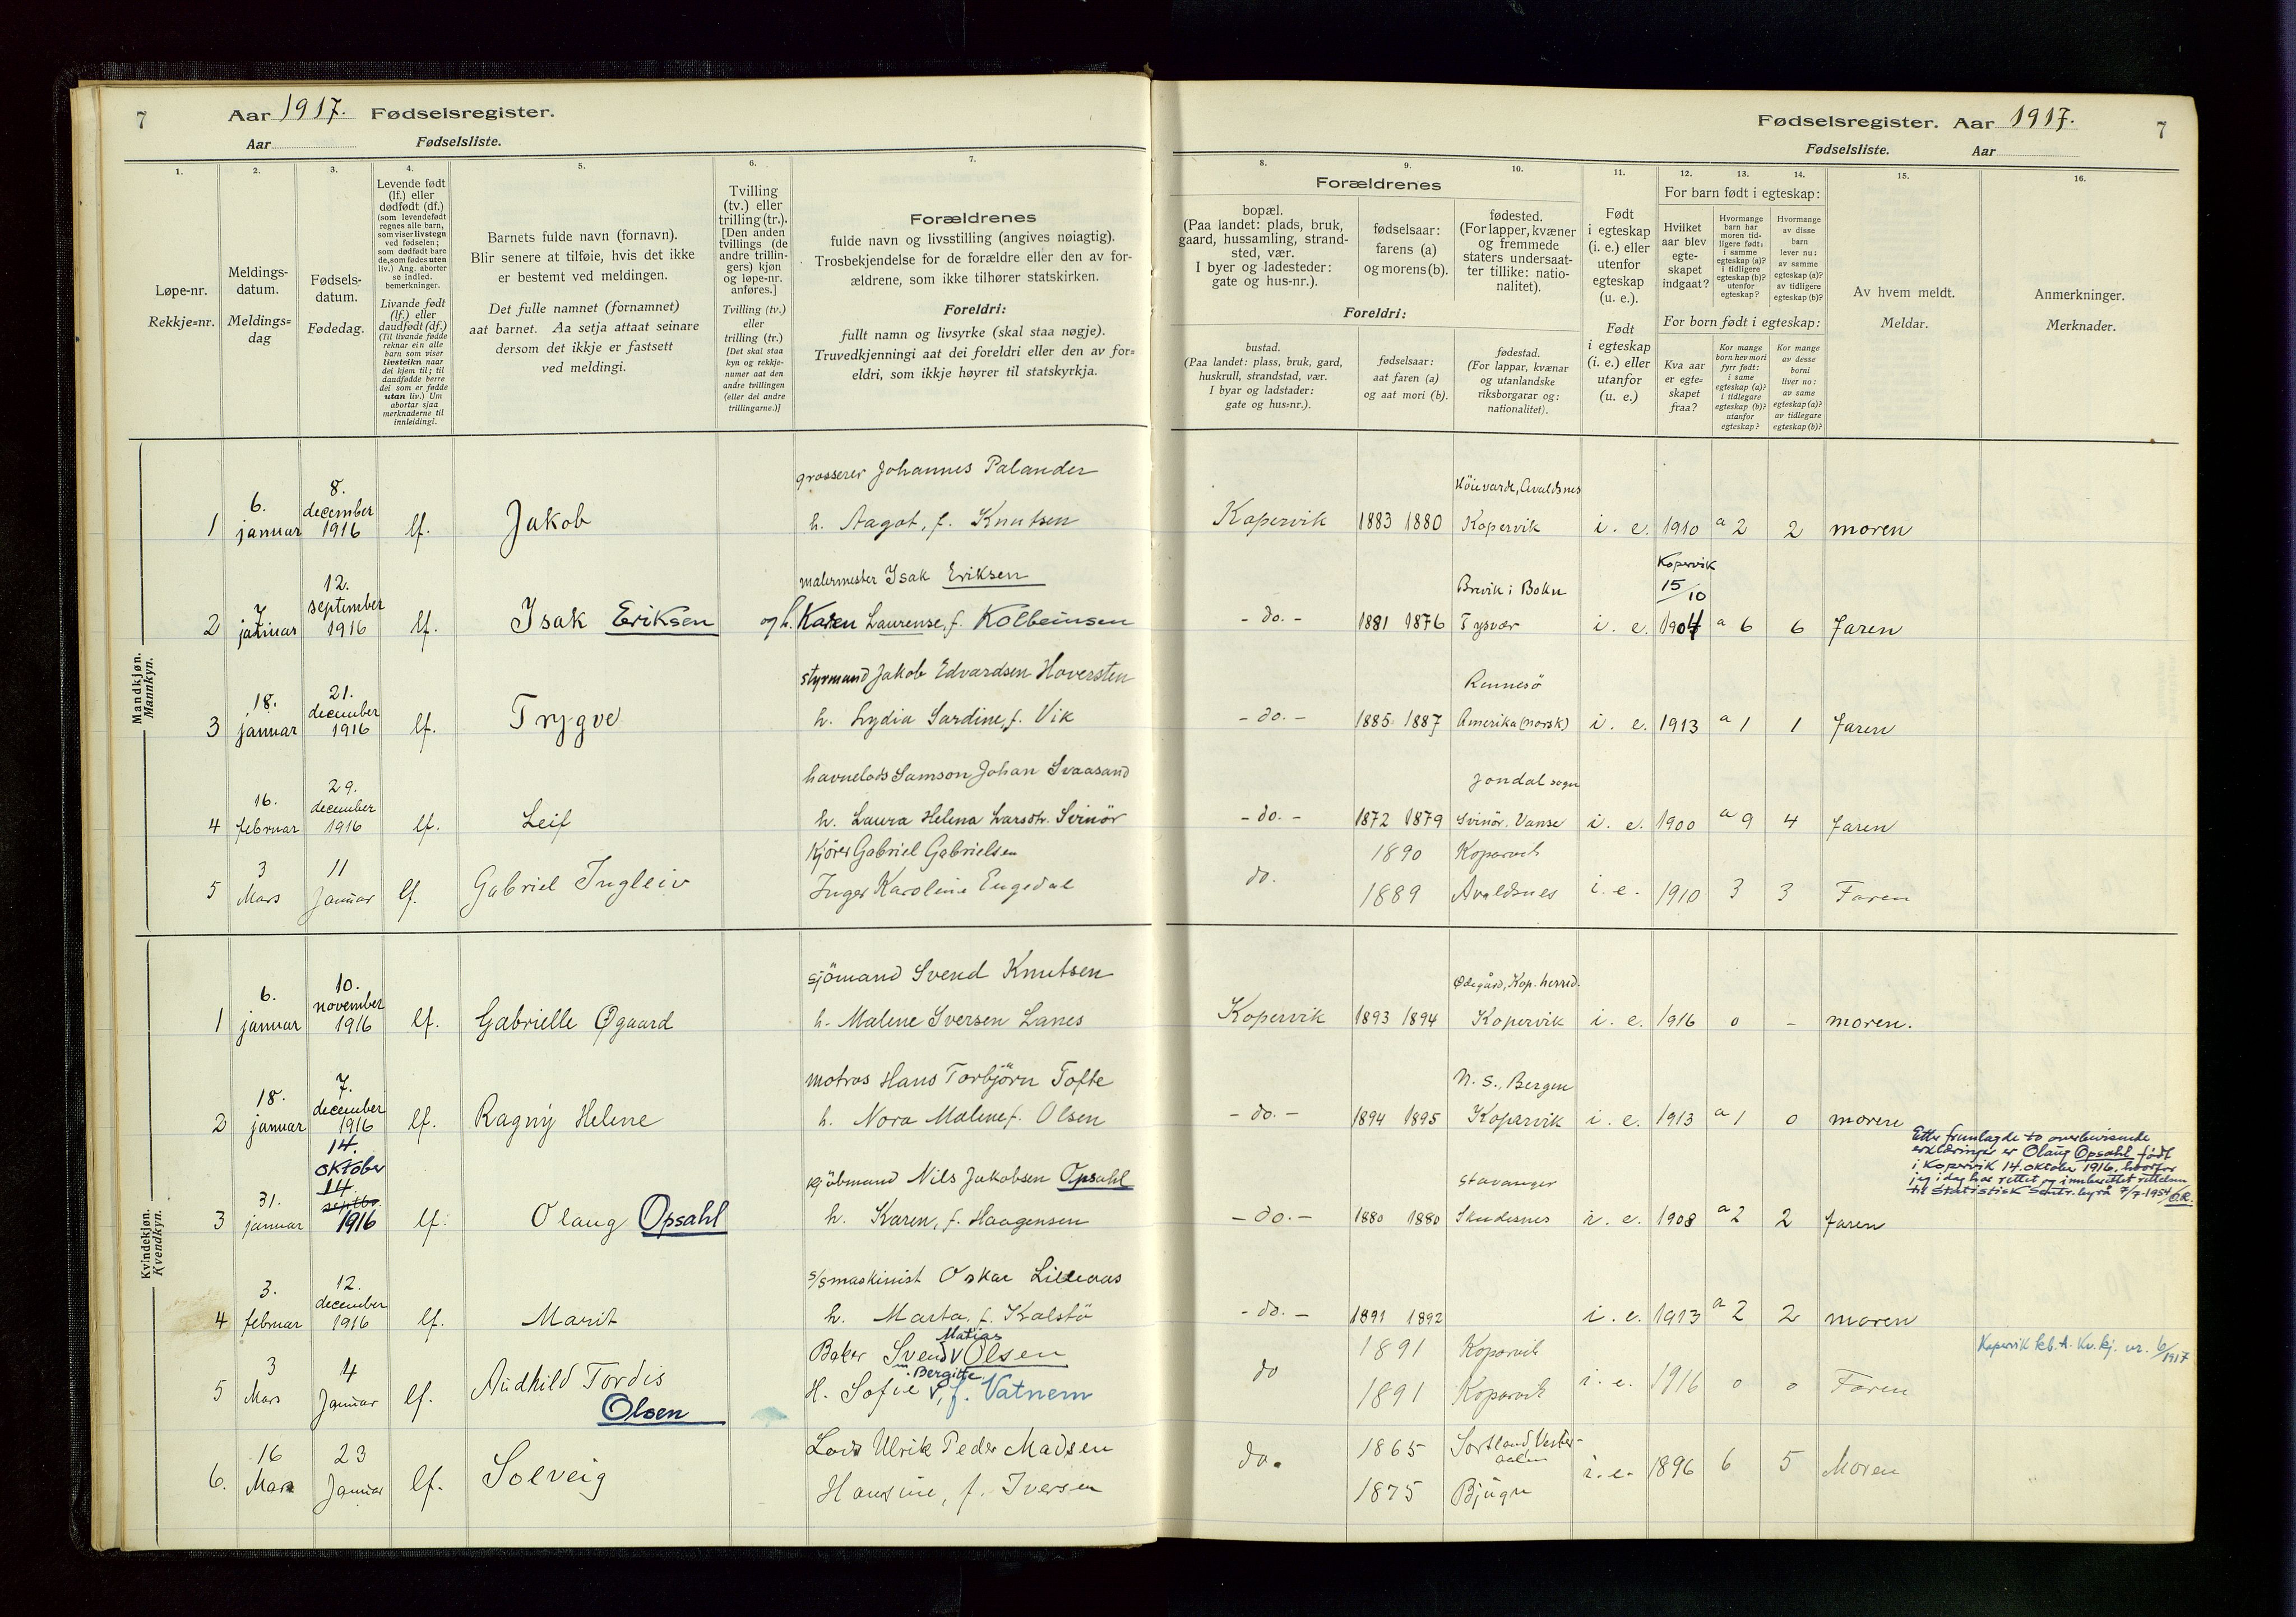 7
Aar 1917. Fødselsregister.
Aar Fødselsliste.
1.
Løpe-nr.
Rekkje=nr.
2.
Meldings-
datum.
Meldings=
dag
3.
Fødsels-
datum.
Fødedag.
4.
Levende født
(lf.) eller
dødfødt (df.)
(som levendefødt
regnes alle barn,
som viser livstegn
ved fødselen;
som dødfødt bare
de, som fødes uten
liv.) Ang. aborter
se indled.
bemerkninger.
Livande født
(lf.) eller
daudfødt (df.)
(Til livande fødde
reknar ein alle
barn som viser
livsteikn naar
dei kjem til; til
daudfødde berre
dei som er fødde
utan liv.) Um
abortar sjaa
merknaderne til
innleidingi.
5.
Barnets fulde navn (fornavn).
Blir senere at tilføie, hvis det ikke
er bestemt ved meldingen.
Det fulle namnet (fornamnet)
aat barnet. Aa setja attaat seinare
dersom det ikkje er fastsett
ved meldingi.
6.
Tvilling
(tv.) eller
trilling (tr.).
[Den anden
tvillings (de
andre trillin-
gers) kjøn
og løpe-nr.
anføres.]
Tvilling (tv.)
eller
trilling (tr.)
[Det skal staa
kyn og rekkje-
numer aat den
andre tvillingen
(eller dei andre
trillingarne.)]
7.
Forældrenes
fulde navn og livsstilling (angives nøiagtig).
Trosbekjendelse for de forældre eller den av for-
ældrene, som ikke tilhører statskirken.
Foreldri:
fullt namn og livsyrke (skal staa nøgje).
Truvedkjenningi aat dei foreldri eller den av for=
eldri, som ikkje høyrer til statskyrkja.
Mandkjøn.
Mannkyn.
grosserer Johannes Palander
1 6. januar 8. december 1916 lf. Jakob h. Aagot, f. Knutsen
malermester Isak Eriksen
2 7 januar 12. september 1916 lf. Isak Eriksen og h. Karen Laurense, f. Kolbeinsen
styrmand Jakob Edvardsen Hoversten
3 18. januar 21. december 1916 lf. Trygve h. Lydia Sardine, f. Vik
havnelods Samson Johan Svaasand
4 16. februar 29. december 1916 lf. Leif h. Laura Helena Larsdtr. Svinör
Kjörer Gabriel Gabrielsen
5 3 Mars 11 Januar lf. Gabriel Ingleiv Inger Karoline Engedal
Kvindekjøn.
Kvendkyn.
sjömand Svend Knutsen
1 6. januar 10. november 1916 lf. Gabrielle Øgaard h. Malene Iversen Lanes
matros Hans Torbjörn Tofte
2 18. januar 7. december 1916 lf. Ragny Helene h. Nora Malene f. Olsen
14. oktober
kjöbmand Nils Jakobsen Opsahl
3 31. januar 14. septbr. 1916 lf. Olaug Opsahl h. Karen, f. Haagensen
s/s maskinist Oskar Lillenaas
4 3. februar 12. december 1916 lf. Marit h. Marta, f. Kalstö
Matias
Baker Svend v Olsen
Bergitte
5 3 Mars 4 Januar lf. Audhild Tordis H. Sofie v, f. Vatnem
Olsen
Lods Ulrik Peder Madsen
6. 16 Mars 23 Januar lf. Solveig Hansine, f. Iversen
Fødselsregister. Aar 1917.
7
Fødselsliste. Aar
8.
Forældrenes
bopæl.
(Paa landet: plads, bruk,
gaard, hussamling, strand-
sted, vær.
I byer og ladesteder:
gate og hus-nr.).
Foreldri:
bustad.
(Paa landet: plass, bruk, gard,
huskrull, strandstad, vær.
I byar og ladstader:
gate og hus=nr.).
9.
fødselsaar:
farens (a)
og morens (b).
fødselsaar:
aat faren (a)
og aat mori (b).
10.
fødested.
(For lapper, kvæner
og fremmede
staters undersaat-
ter tillike: natio-
nalitet).
fødestad.
(For lappar, kvænar
og utanlandske
riksborgarar og:
nationalitet).
11.
Født
i egteskap
(i. e.) eller
utenfor
egteskap
(u. e.).
Født
i egteskap
(i. e.) eller
utanfor
(u. e.)
For barn født i egteskap:
12.
Hvilket
aar blev
egte-
skapet
indgaat?
For born født i egteskap:
Kva aar
er egte=
skapet
fraa?
13.
Hvormange
barn har
moren tid-
ligere født:
i samme
egteskap (a)?
i tidligere
egteskap (b)?
utenfor
egteskap?
Kor mange
born hev mori
fyrr født:
i same
egteskap (a)?
i tidlegare
egteskap (b)?
utanfor
egteskap?
14.
Hvormange
av disse
barn
lever nu:
av samme
egteskap (a)?
av tidligere
egteskap (b)?
Kor mange
av desse
borni
liver no:
av same
egteskap (a)?
av tidlegare
egteskap (b)?
15.
Av hvem meldt.
Meldar.
16.
Anmerkninger.
Merknader.
Höievarde, Avaldsnes
Kopervik 1883 1880 Kopervik i. e. 1910 a 2 2 moren
Kopervik 15/10
Brevik i Bokn
- do. - 1881 1876 Tysvær i. e. 1904 a 6 6 faren
Rennesö
- do. - 1885 1887 Amerika (norsk) i. e. 1913 a 1 1 faren
Jondal sogn
- do. - 1872 1879 Svinör. Vanse i. e. 1900 a 9 4 faren
1890 Kopervik
do. 1889 Avaldsnes i. e. 1910 3 3 Faren
Ødegård, Kop. herred.
Kopervik 1893 1894 Kopervik i. e. 1916 0 - moren.
N. S., Bergen
- do. - 1894 1895 Kopervik i. e. 1913 a 1 0 moren
Etter fremlagde to overbevisende
erklæringer er Olaug Opsahl født
i Kopervik 14. oktober 1916, hvorfor
jeg i dag har rettet og innberettet rettelsen
til Statistisk Sentr.byrå 7/7-1954
Stavanger
- do. - 1880 1880 Skudesnes i. e. 1908 a 2 2 faren
- do. - 1891 1892 i. e. 1913 a 2 2 moren
Kopervik kb. A. Kv.kj. nr. 6/1917
1891 Kopervik
do 1891 Kopervik i. e. 1916 0 0 Faren
1865 Sortland, Vester-
aalen
do. 1875 Bjugn i. e. 1896 6 5 Moren